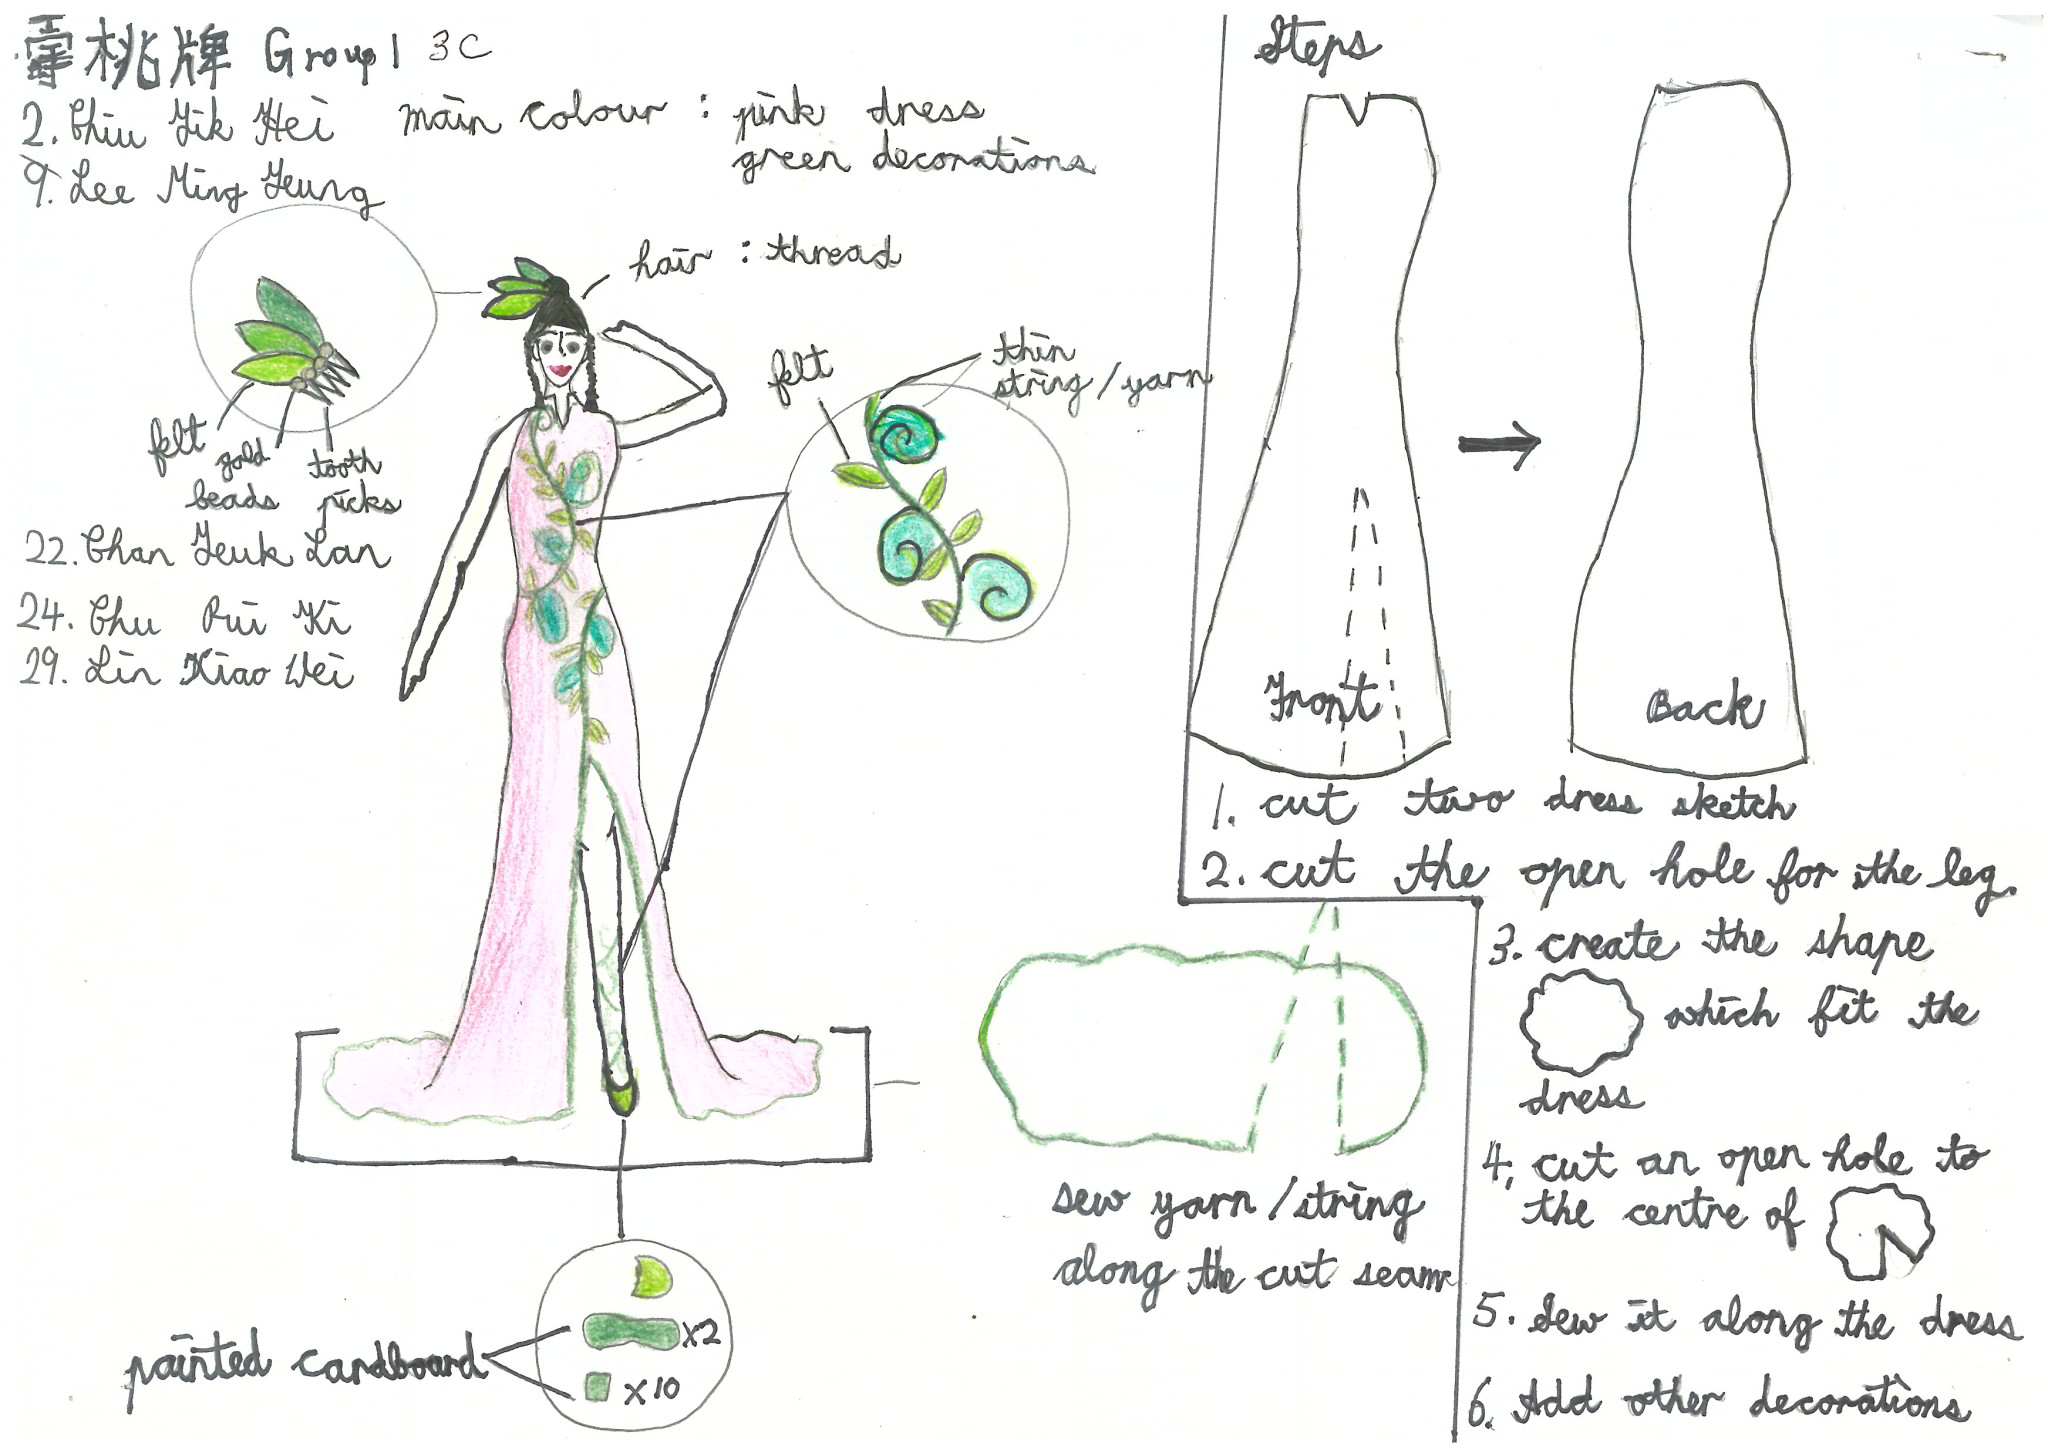 桃牌 Group 1 3C
2. Chiu Yik Hei
9. Lee Ming Yeung
main colour : pink dress
green decorations
hair : thread
felt
gold beads
tooth picks
felt
thin
string / yarn
22. Chan Yeuk Lan
24. Chu Pui Ki
29. Lin Xiao Wei
painted cardboard
x2
x10
sew yarn / string
along the cut seam
Steps
Front
Back
1. cut two dress sketch
2. cut the open hole for the leg.
3. create the shape
which fit the
dress
4. cut an open hole to
the centre of
5. Sew it along the dress
6. Add other decorations